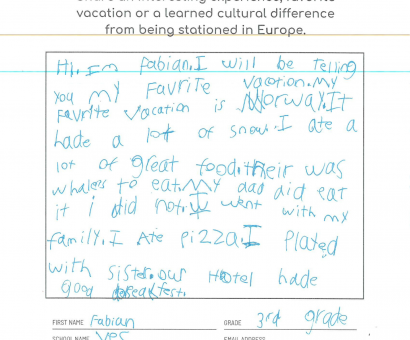 vacation or a learned cultural difference
from being stationed in Europe.
Hi. Im fabian. I will be telling
you my Favrite vacation. My
Favrite vacation is Norway. It
hade a lot of snow. I ate a
lot of great food. their was
whales to eat. My dad did eat
it i did not. I went with my
family. I Ate pizza. I Plated
with sister. our Hotel hade
good breakfast.
FIRST NAME Fabian GRADE 3rd grade